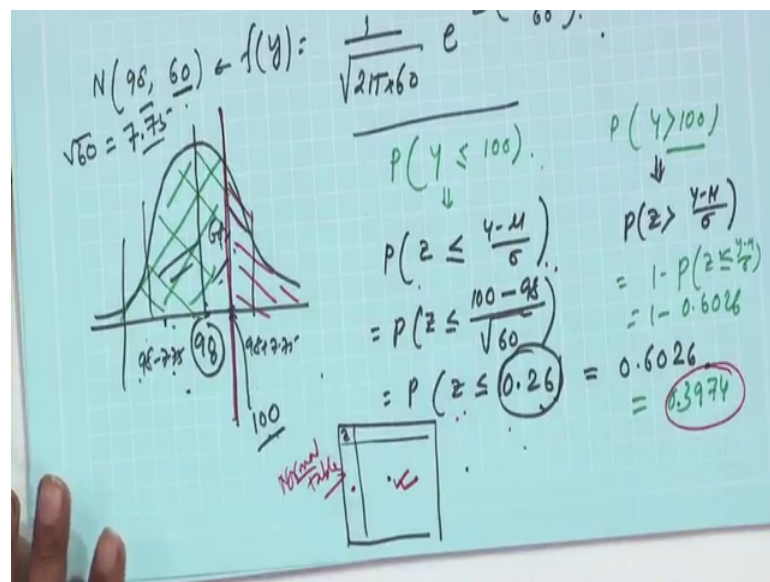 N(98, 60) ← f(y): 1/√2π×60 e
√60 = 7.75
98-7.75 98 98+7.75
100
P(Y ≤ 100).
⇓
P(Z ≤ y-μ/σ)
= P(Z ≤ 100-98/√60)
= P(Z ≤ 0.26) = 0.6026
P(Y>100)
⇓
P(Z> y-μ/σ)
= 1- P(Z≤ y-μ/σ)
= 1- 0.6026
= 0.3974
Normal table
z